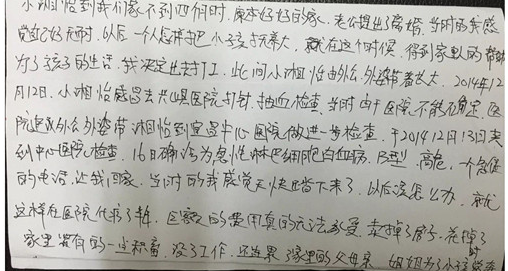 小湘怡到我们家不到四个时，原本好好的家，老公提出了离婚，当时的我感
觉好无时，以后一个人怎样把小孩子抚养大，就在这个时候，得到家里的帮助
为了孩子的生活，我决定出去打工，此间小湘怡由外公、外婆带着长大，2014年12
月12日，小湘怡感冒去兴山县医院打针，抽血检查，当时由于医院不能确定，医
院建议外公外婆带湘怡到宜昌中心医院做进一步检查，于2014.12月13日来
到中心医院检查，16日确诊为急性淋巴细胞白血病，B型，高危，一个急促
的电话，让我回家，当时的我感觉天快踏下来了，以后该怎么办，就
这样在医院代疗了半年，巨额的费用真的无法承受，卖掉了房子，花掉了
家里仅有的一些积蓄，没了工作，还连累了家里的父母亲，姐姐为了小孩